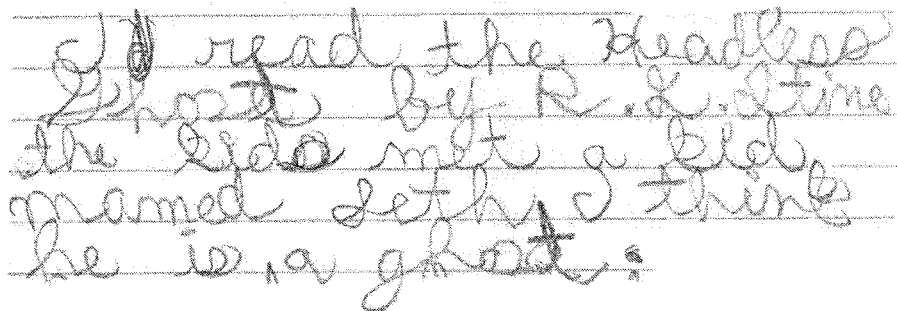 I read the Headless
Ghost by R.L.Stine
the kids met a kid
named Seth I think
he is a ghost.